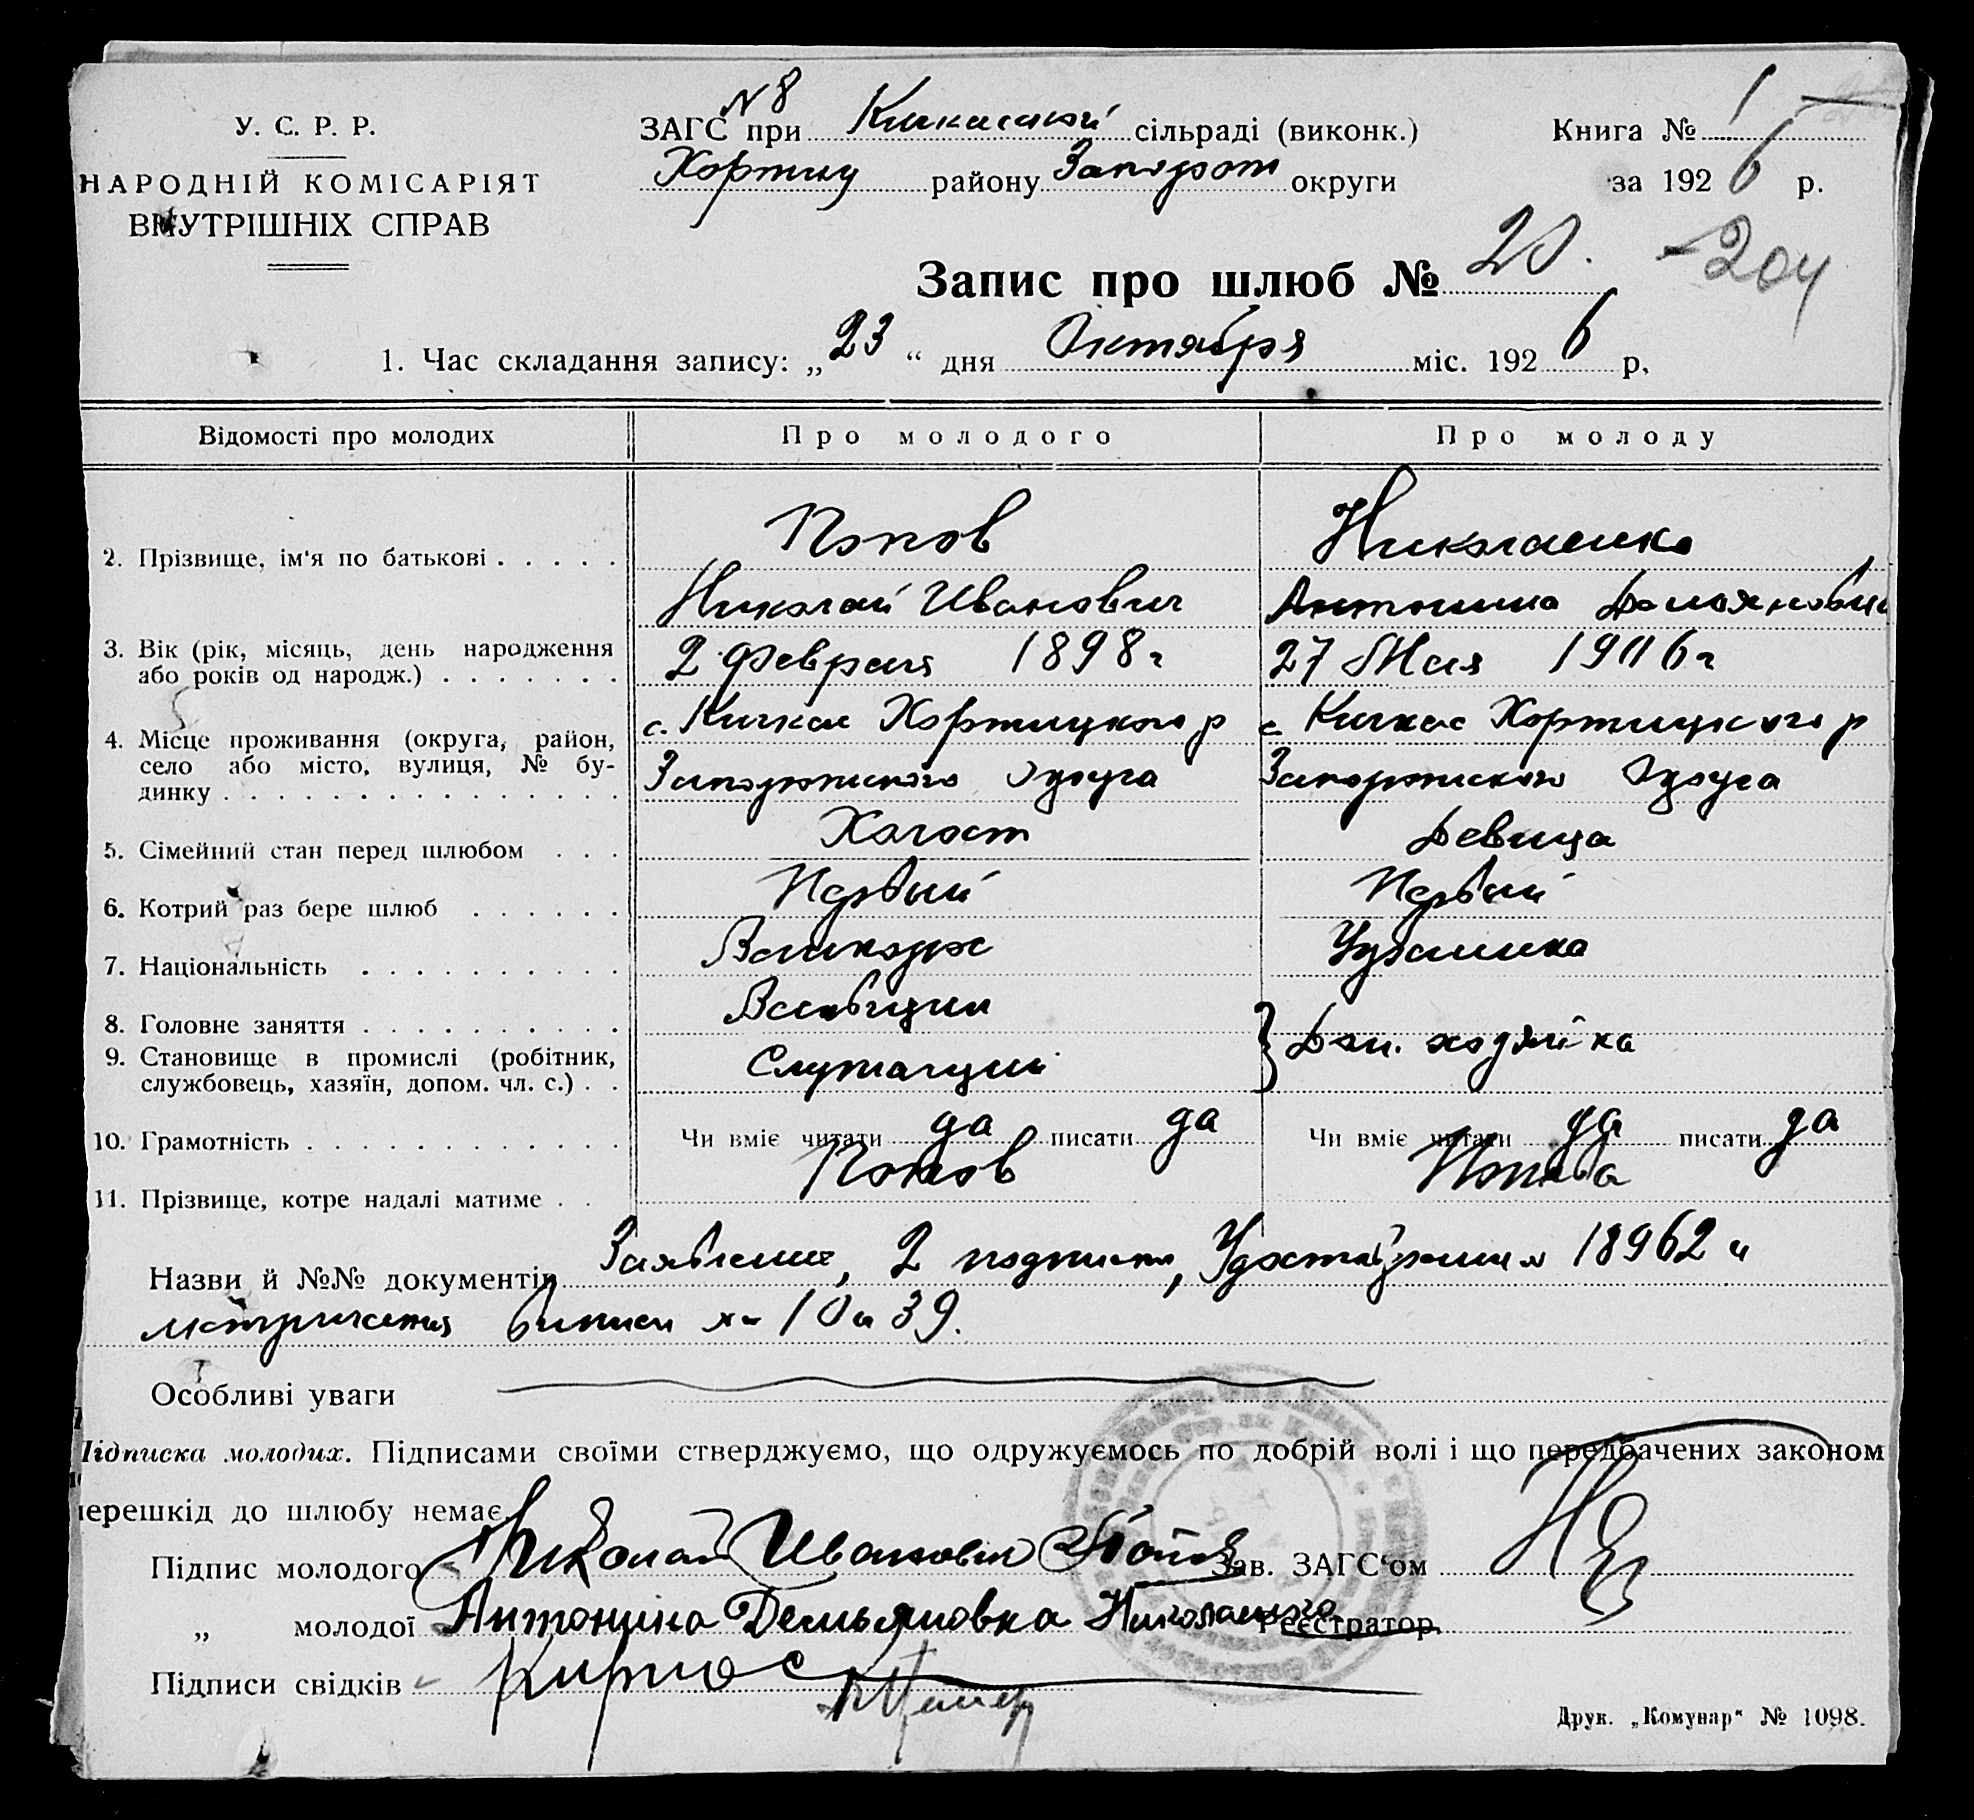 У. С. Р. Р.
НАРОДНІЙ КОМІСАРІЯТ
ВНУТРІШНІХ СПРАВ
N 8
ЗАГС при Кичкаской сільраді (виконк.)
Хортиц району Запорож округи
Книга № 1
за 1926 р.
204
Запис про шлюб № 20.
1. Час складання запису: „23“ дня Октября міс. 1926 р.
Відомості про молодих Про молодого Про молоду
2. Прізвище, ім'я по батькові . . . . . Попов Николаенко
Николай Иванович Антонина Демьяновна
3. Вік (рік, місяць, день народження
або років од народж.) . . . . . . . 2 Февраля 1898 г 27 Мая 1906 г
с. Кичкас Хортицкого р с. Кичкас Хортицкого р
4. Місце проживання (округа, район,
село або місто, вулиця, № бу-
динку . . . . . . . . . . . . . . . Запорожского Округа Запорожского Округа
5. Сімейний стан перед шлюбом . . . Холост Девица
6. Котрий раз бере шлюб . . . . . . Первый Первый
7. Національність . . . . . . . . . . Великорос Украинка
8. Головне заняття . . . . . . . . . .
9. Становище в промислі (робітник,
службовець, хазяїн, допом. чл. с.) . . Служащий Дом. хозяйка
10. Грамотність . . . . . . . . . . . . Чи вміє читати да писати да Чи вміє читати да писати да
11. Прізвище, котре надалі матиме . . Попов Попова
Назви й №№ документів Заявление, 2 подписки, Удостоверения 18962 и
метрическая выписи № 10 и 39.
Особливі уваги
Підписка молодих. Підписами своїми стверджуємо, що одружуємось по добрій волі і що передбачених законом
перешкід до шлюбу немає.
Підпис молодого Николай Иванович Попов Зав. ЗАГС'ом
„ молодої Антонина Демьяновна Николаенко Реєстратор
Підписи свідків
Друк. „Комунар“ № 1098.